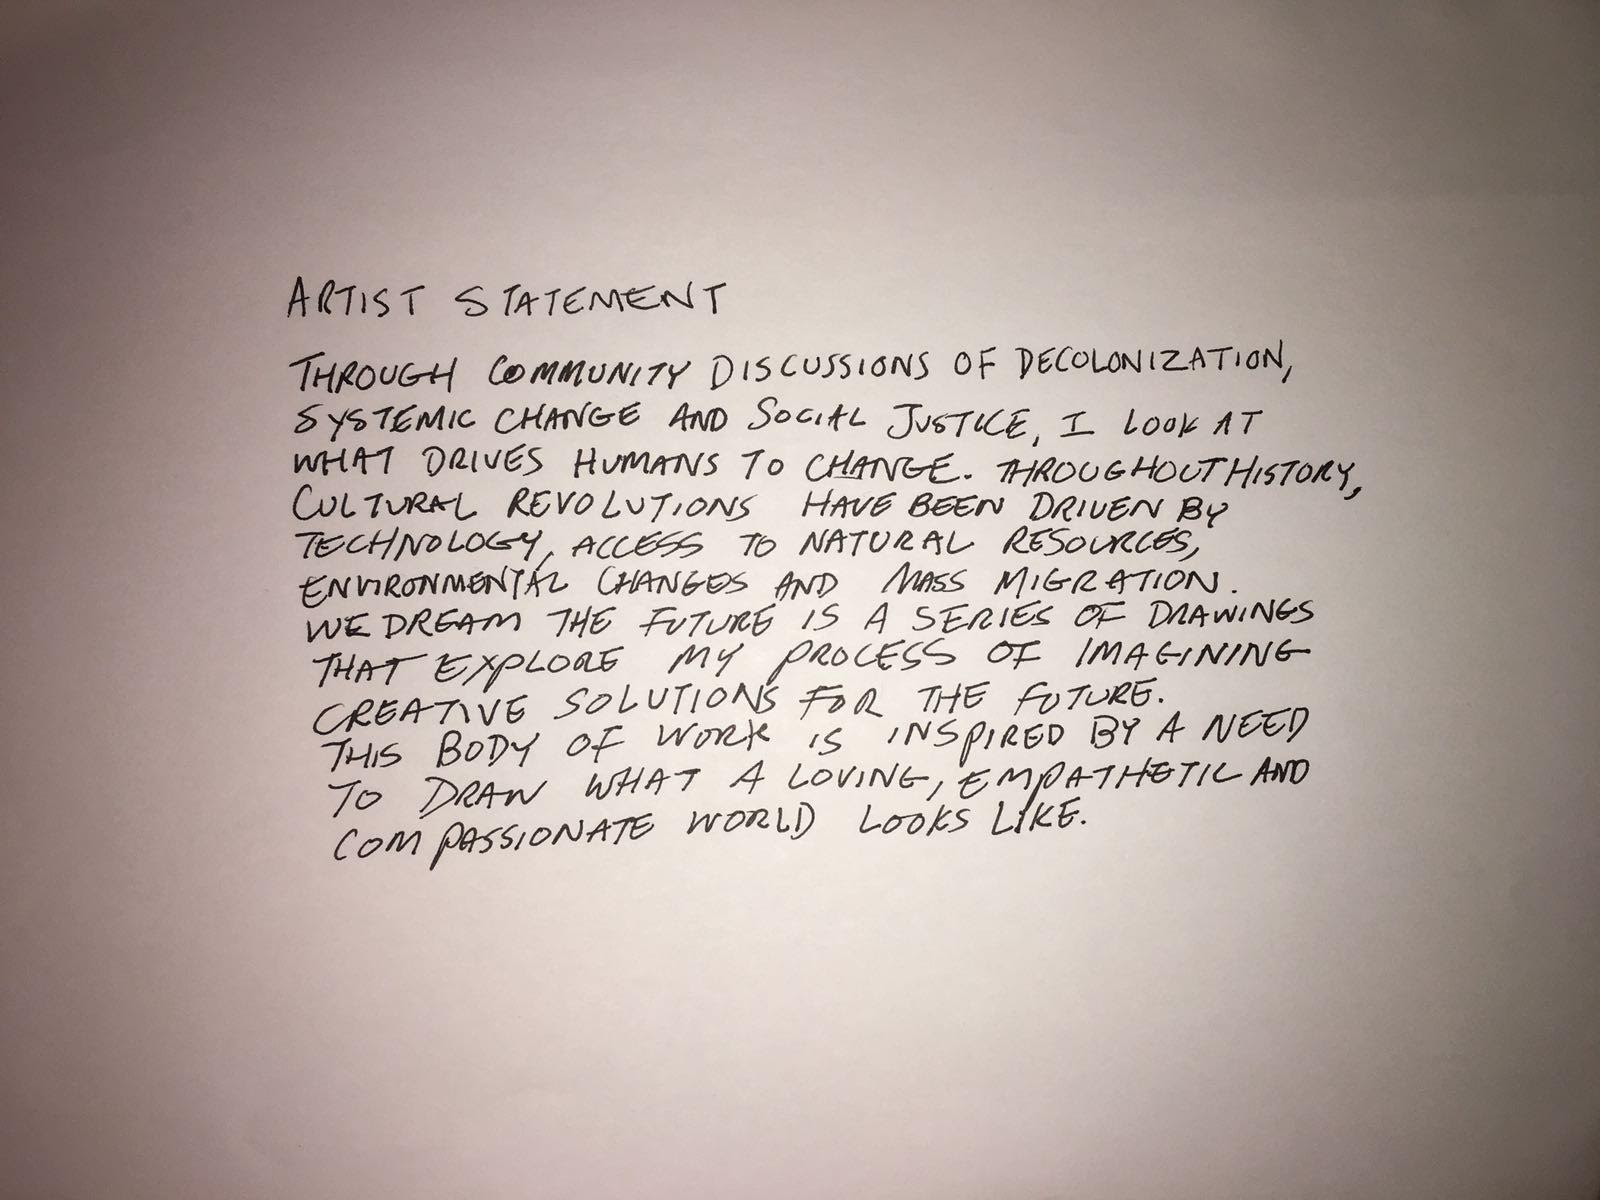 ARTIST STATEMENT
THROUGH COMMUNITY DISCUSSIONS OF DECOLONIZATION,
SYSTEMIC CHANGE AND SOCIAL JUSTICE, I LOOK AT
WHAT DRIVES HUMANS TO CHANGE. THROUGHOUT HISTORY,
CULTURAL REVOLUTIONS HAVE BEEN DRIVEN BY
TECHNOLOGY, ACCESS TO NATURAL RESOURCES,
ENVIRONMENTAL CHANGES AND MASS MIGRATION.
WE DREAM THE FUTURE IS A SERIES OF DRAWINGS
THAT EXPLORE MY PROCESS OF IMAGINING
CREATIVE SOLUTIONS FOR THE FUTURE.
THIS BODY OF WORK IS INSPIRED BY A NEED
TO DRAW WHAT A LOVING, EMPATHETIC AND
COMPASSIONATE WORLD LOOKS LIKE.